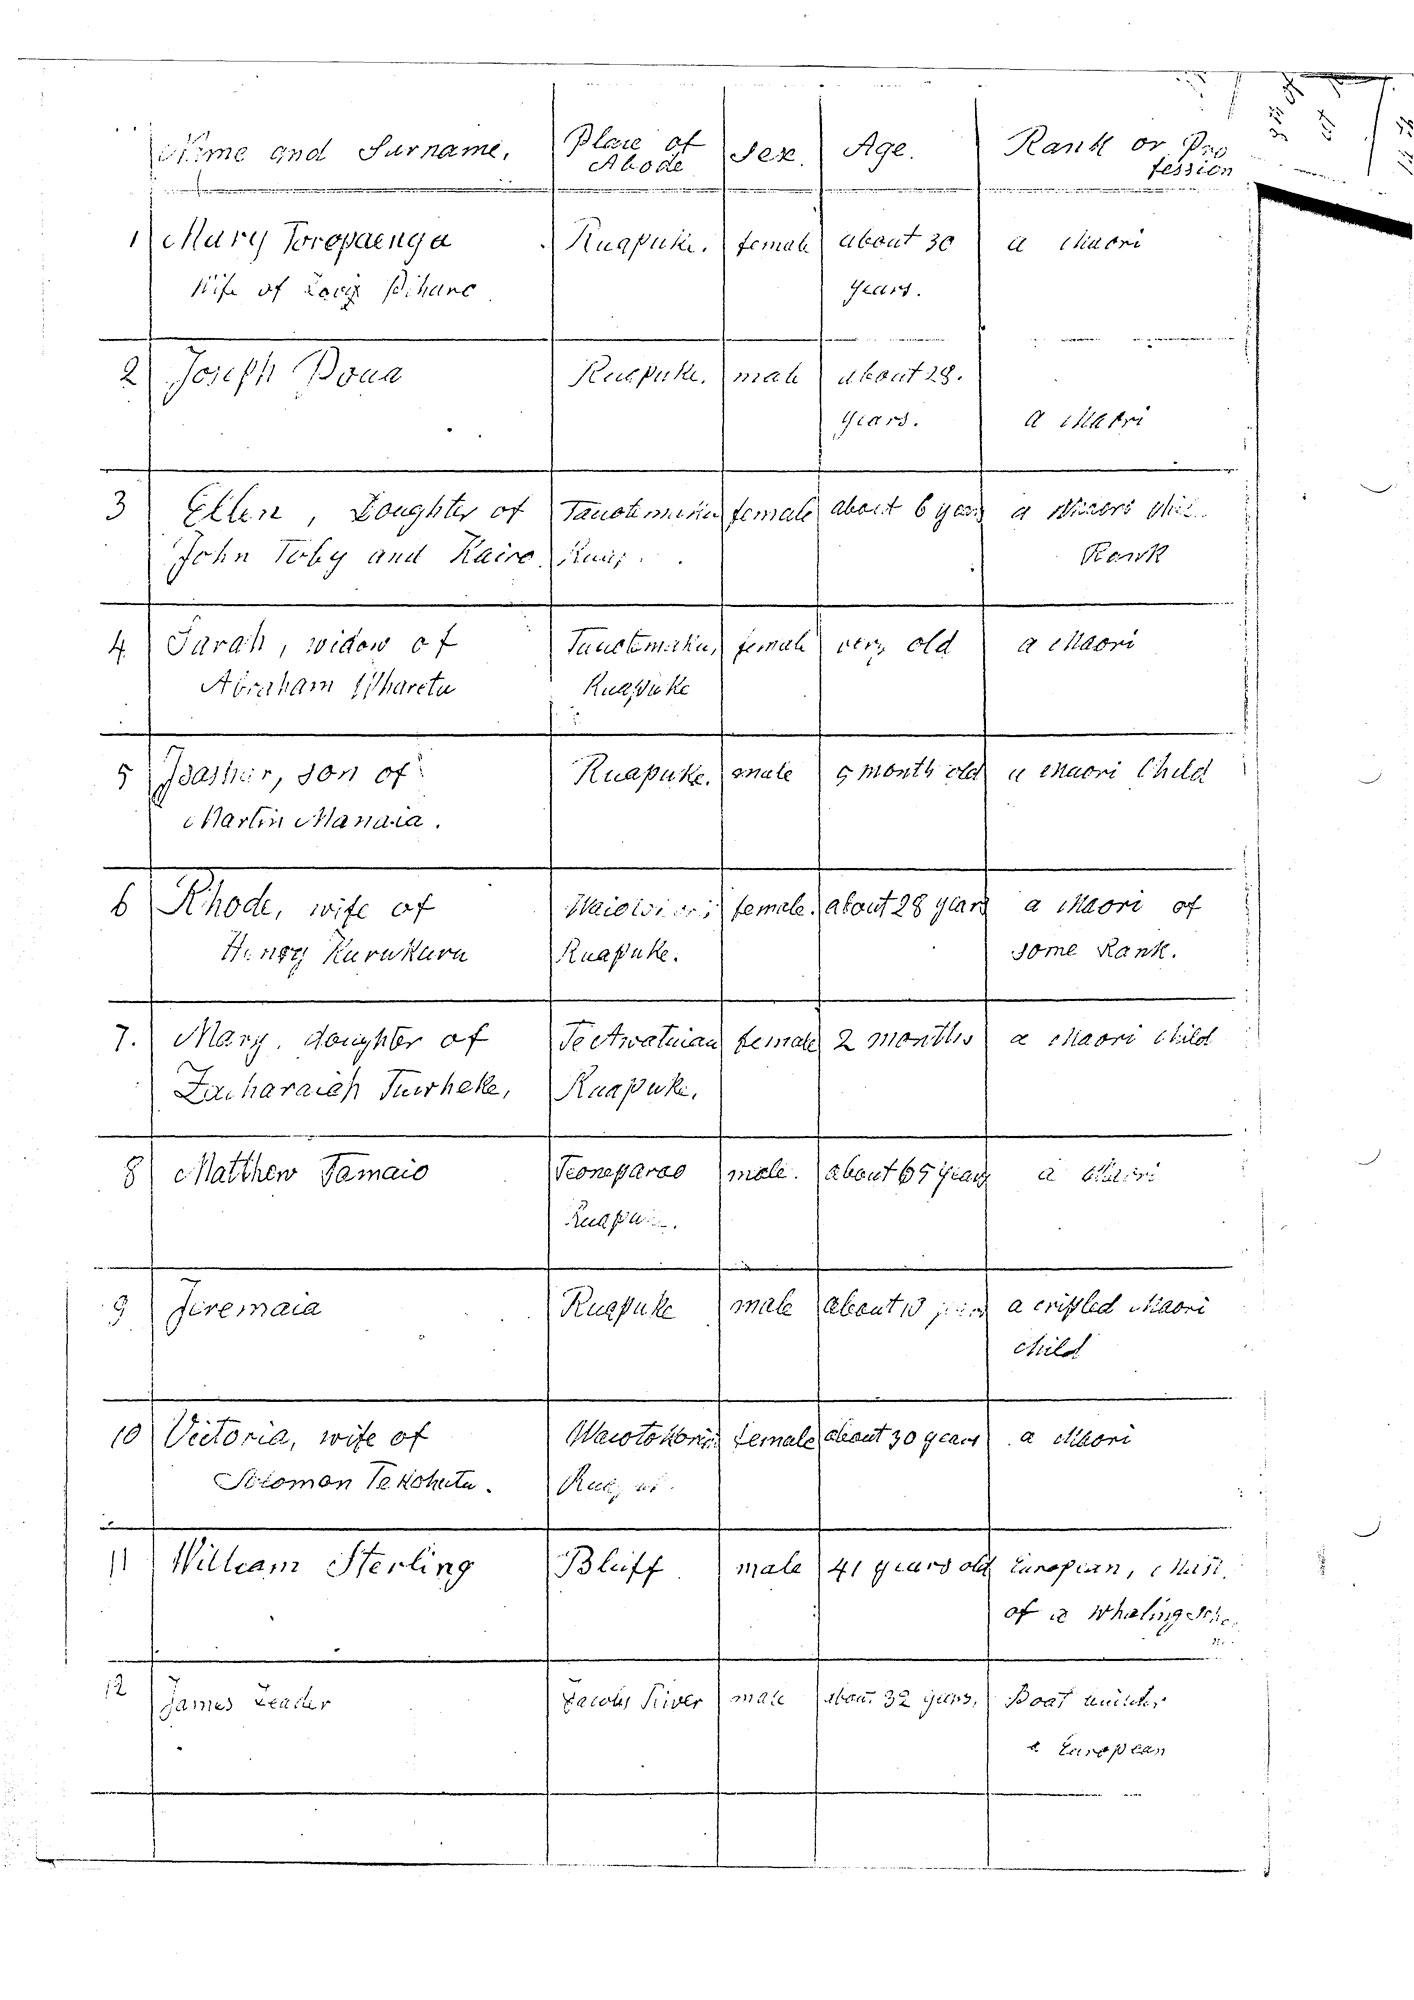 Name and Surname. Place of Abode Sex. Age. Rank or Profession
1 Mary Toropaenga Ruapuke. female about 30 a Maori
Wife of years.
2 Joseph Poua Ruapuke. male about 28. 
years. a Maori
3 Ellen, Doughter of Tauotemaku female about 6 years a Maori
John Toby and Kairo. Rank
4 Sarah, widow of Tauotemaku, female very old a Maori
Abraham Wharetu Ruapuke
5 son of Ruapuke. male 5 month old a Maori Child
Martin Manaia.
6 Rhode, wife of female. about 28 years a Maori of
Henry Kurukuru Ruapuke. some Rank.
7. Mary, doughter of female 2 months a Maori child
Zacharaiah Tuwheke, Ruapuke.
8 Matthew Tamaio Teoneparao male. about 65 years a Maori
9 Jeremaia Ruapuke male about a cripled Maori
child
10 Victoria, wife of female about 30 years a Maori
Solomon Tekohutu.
11 William Sterling Bluff male 41 years old European,
of a whaling
12 James Leader Jacobs River male about 32 years. Boat builder
a European